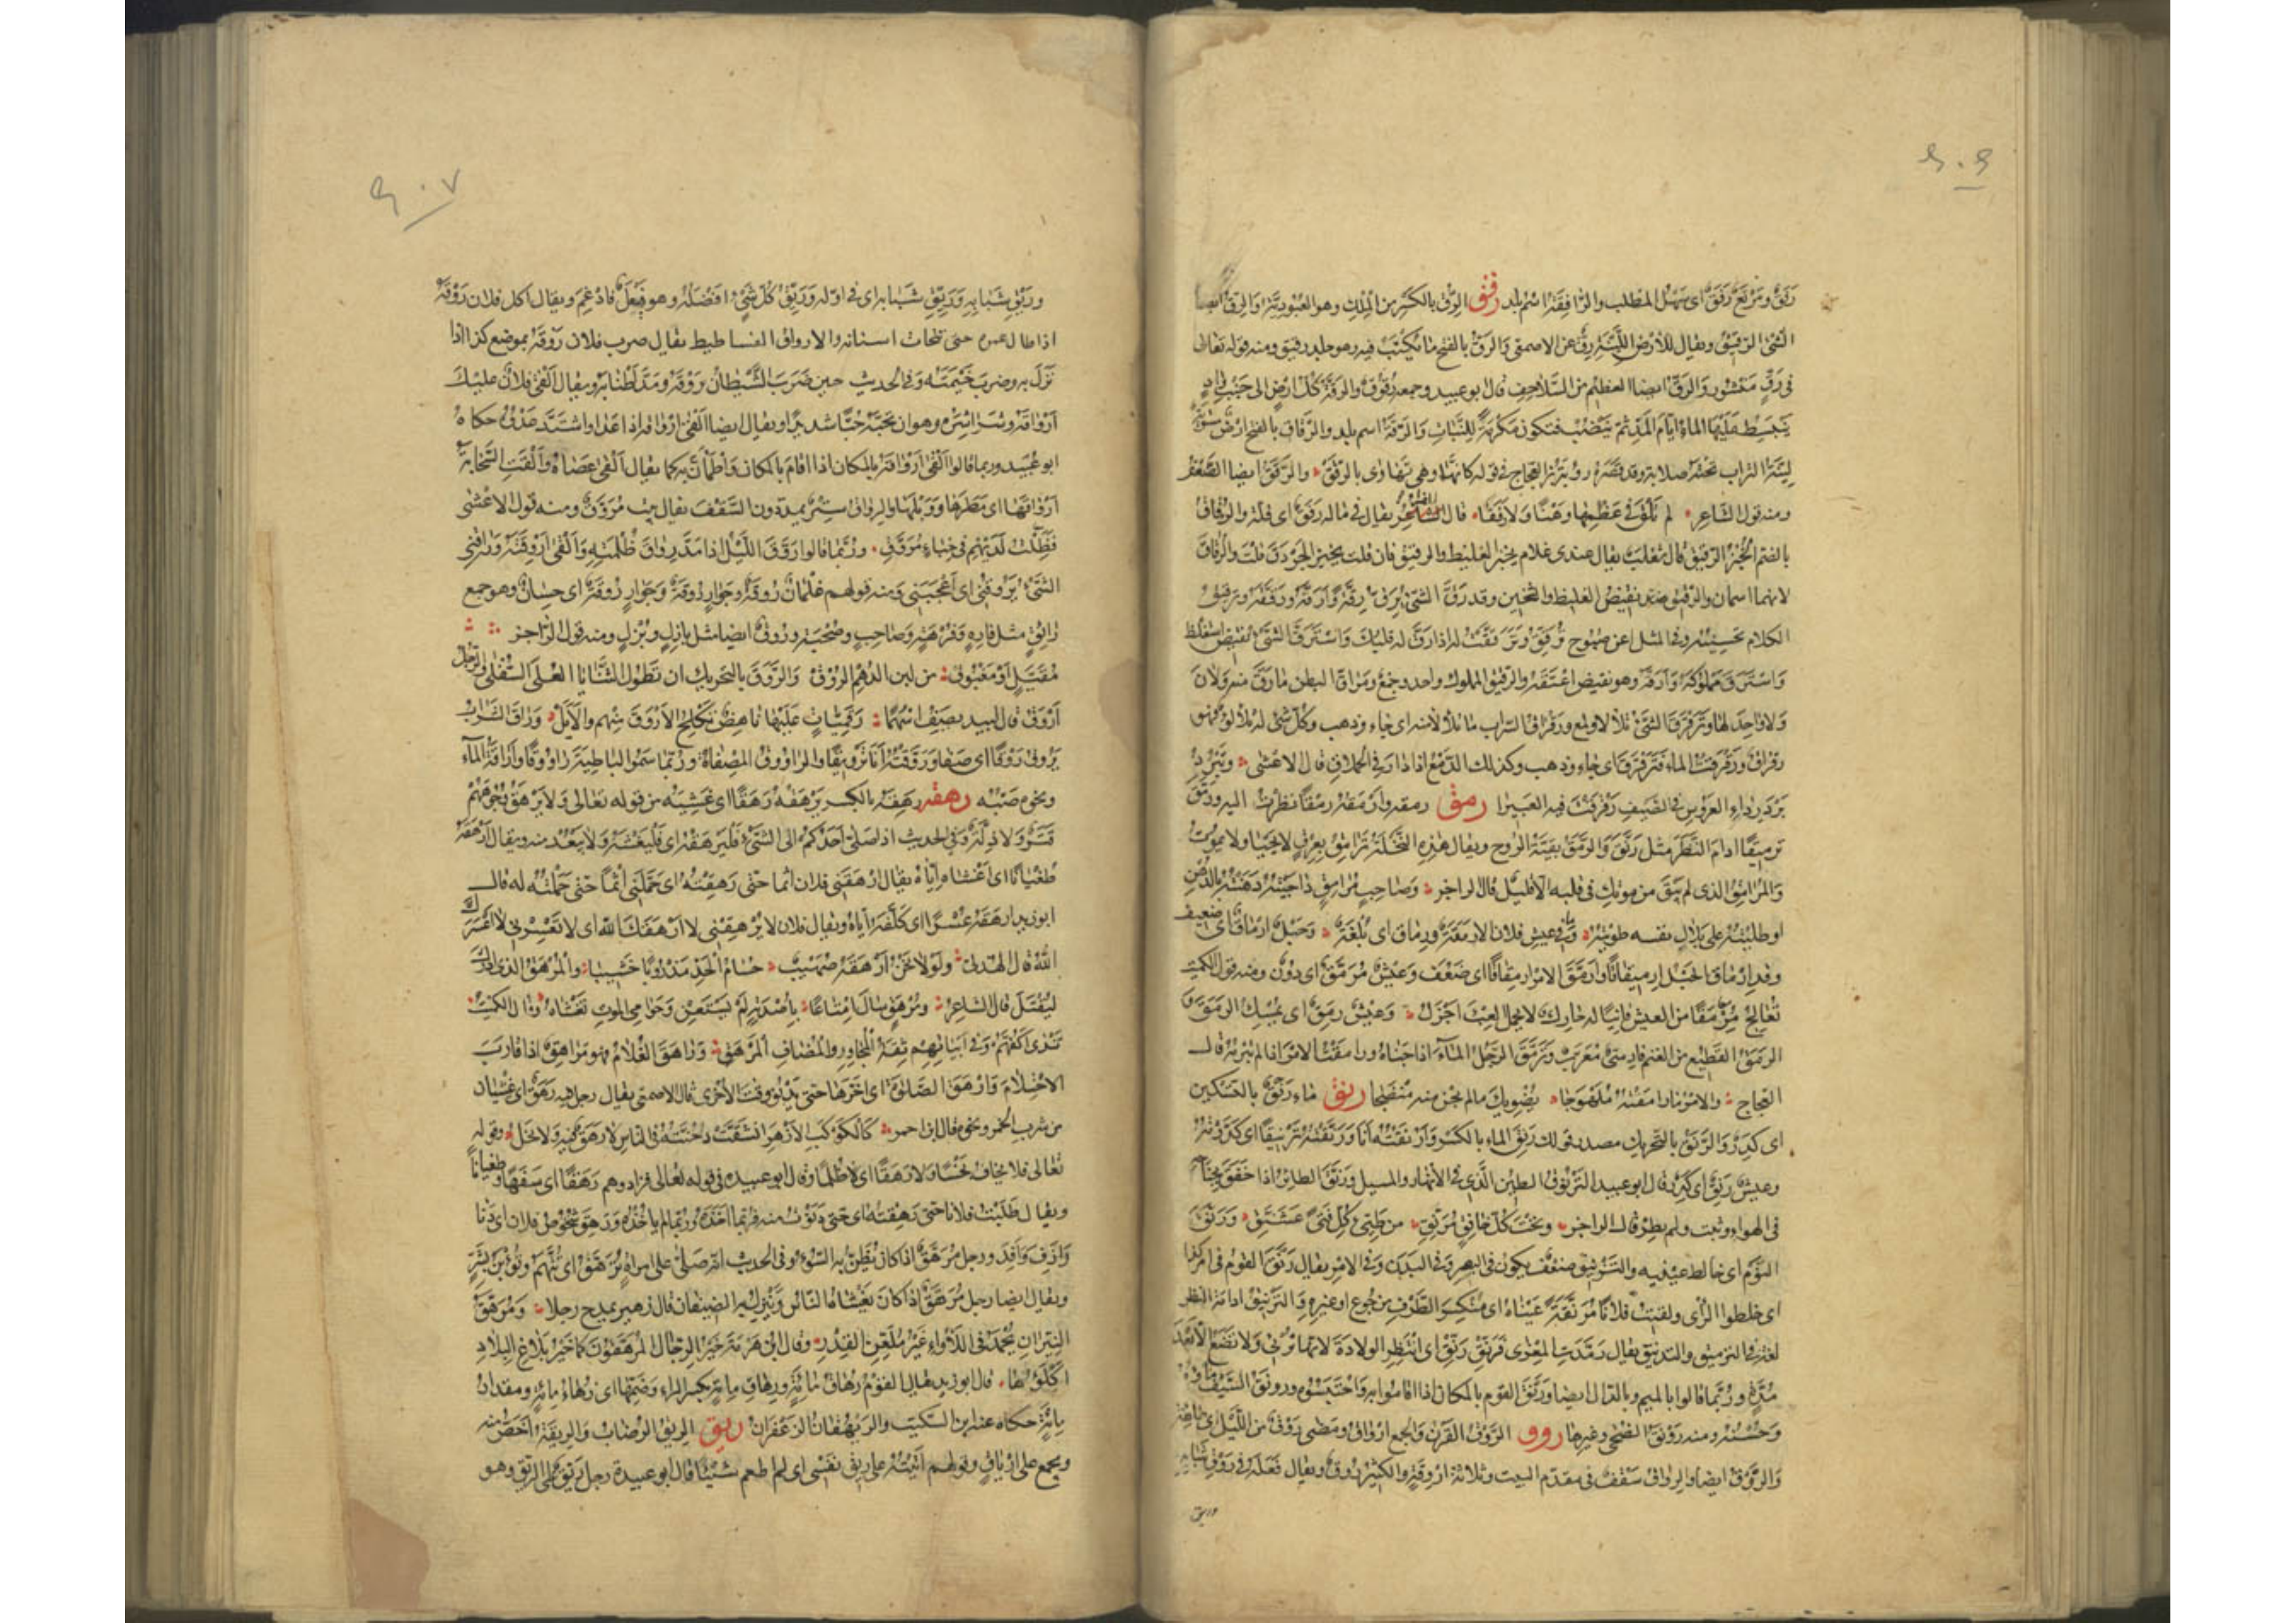 رَفَقٌ ومَرْتَعٌ رَفَقٌ اى سَهْلُ المَطلب والرّافِقَةُ اسْمُ بلد رقق الرِّقّ بالكَسْر من المِلْك وهو العُبُودِيَّة والرِّقّ ايضا
الشئ الرّقيقُ ويقال للأرْض اللَّيِّنة رِقٌّ عن الاصمعى والرَّقّ بالفتح ما يُكْتَبُ فيه وهو جلد رقيق ومنه قوله تعالى
فى رَقٍّ مَنْشُور والرَقّ ايضا العظيم من السَّلاحِف قال ابوعبيد وجمعه رُقُوقٌ والرَقَّة كلّ ارْضٍ الى جَنْب وادٍ
يَنْبَسِط عَلَيْها الماءُ ايّام المَدّ ثمّ يَنْضُبُ فتكون مَكْرُمَةً للنَّبات والرَقَّة اسم بلد والرَّقاق بالفتح ارْضٌ مستوية
لَيِّنَة التراب تحته صلابة وقد قصَرَه رؤبَة بن العجّاج فى قوله كانّها وهى تَهاوَى بالرَقَقْ والرَّقَقُ ايضا الضَّعْف
ومنه قول الشاعر لم تَلْقَ فى عَظْمِها وَهْنًا ولا رَقَقا قال الفرّاء يقال فى ماله رَقَقٌ اى قلّة والرُّقاقُ
بالضم الخُبْز الرّقيق قال ثعلب يقال عندى غلام يخبز الغليظ والرقيق فان قلت يخبز الجَرْدَقَ قلت والرُّقاقَ
لانهما اسمان والرّقيق نقيضُ الغليظ والثخين وقد رَقَّ الشئ يَرِقّ رِقَّةً وأرَقَّهُ ورقّقَهُ وترقيق
الكلام تحسينُه وفى المثل اعن صَبُوح تُرَقِّقُ وتَرَقَّقْتُ له اذا رَقَّ له قلبك واسْتَرَقَّ الشئُ نقيض استغلظ
واسْتَرَقَّ مملُوكَه وأرَقَّهُ وهو نقيض اعْتَقَه والرقيق المملوك واحد وجمع ومَراقّ البطن ما رقّ منه ولانَ
ولا واحِدَ لها وتَرَقْرَقَ الشئ تلألأ ولمع ورَقْراق السَّراب ما تلألأ منه اى جاء وذهب وكلّ شئ له تلألؤ فهو
رقراق ورَقْرَقتُ الماء فَتَرَقْرَقَ اى جاء وذهب وكذلك الدَّمْعُ اذا دار فى الحملاق قال الاعشى وتَبْرُدُ
بَرْدَ رِداءِ العَرُوسِ فى الصَّيف رَقْرَقتَ فيه العَبِيرا رمق رمقه وارْمُقه رَمْقًا نظرت اليه ورَمَّقَ
تَرْميقًا ادامَ النَّظَر مثل رَنَّقَ والرَمَقُ بقيّة الرُّوح ويقال هذه النَّخلَة تُرامِقُ بِعِرْقٍ لا تَحْيَا ولا تموت
والمُرامِقُ الذى لم يَبْقَ من مودّتك فى قلبه الا قليلٌ قال الراجز وصاحِبٍ مُرامِقٍ داجَيْتُه دَهَنْتُه بالدُّهن
اوطلَيْتُه على بِلالِ نفسه طَوَيْتُه وما فى عيش فلان الا رُمْقَةٌ ورِماق اى بُلْغَةٌ وحَبْلٌ ارْماقٌ اى ضعيف
وقد ارْماقّ الحَبْلُ ارْمِيقاقًا وارْمَقَّ الامر ارمقاقًا اى ضَعُف وعَيْشٌ مُرَمَّقٌ اى دُونٌ ومنه قول الكميت
نُعالِجُ مُرْمَقًّا من العيش فانيًا له حارِكٌ لا يحمل العِبْءَ اجْزَلُ وعيشٌ رمِقٌ اى يُمْسِكُ الرمَقَ
الرمَق القَطيع من الغنم فارسىّ مُعَرَّب وتَرَمَّقَ الرَّجُل المآء اذا حَسَاه ورامَقْتُ الامْر اذا لم تُبْرِمْه قال
العجاج والامْرُ ما رامَقْتَهُ مُلَهْوَجا يُضْوِيكَ ما لم تحى منه مُنْضَجا رنق ماءٌ رَنْقٌ بالتسكين
اى كَدِرٌ والرَّنَقُ بالتحريك مصدر قولك رَنِقَ الماء بالكسر وأرْنَقْتُه أنا ورَنَّقْتُه تَرْنيقًا اى كدَّرْتُه
وعيشٌ رَنِقٌ اى كَدِرٌ قال ابو عبيد التَّرْنُوق الطين الذى فى الأنهار والمسيل ورَنَّقَ الطائر اذا خَفَقَ بجناحيه
فى الهواء وثبت ولم يطِرْ قال الراجز وتَحْتَ كلّ خافِقٍ مُرَنِّقِ من طَيِّئٍ كلُّ فتىً عَشَنَّقِ ورَنَّقَ
النَّوْم اى خالط عينيه والتَّرْنيق ضَعْفٌ يكون فى البصر وفى البدن وفى الامْر يقال رَنَّقَ القوم فى امر كذا
اى خلطوا الرّأى ولقيت فلانًا مُرَنِّقَةً عيناه اى مُنْكسِر الطَّرْف من جُوع اوغيره والترنيق ادامة النظر
لغة فى الترميق والتدنيق يقال رَمَّدَتِ المِعْزى فرَنِّقْ رَنِّقْ اى انتظِر الولادَة لانها تُرَئِّى ولا تَضَعُ الا بعد
مُدَّةٍ وربّما قالوا بالميم وبالدّال ايضا ورَنَّقَ القوم بالمكان اذا اقاموا به واحْتَبَسُوا به ورونق السَّيف ماؤه
وحُسْنُه ومنه رَوْنَق الضُّحى وغيرها روق الرَّوْق القَرْن والجمع ارْواق ومضى رَوْقٌ من اللَّيل اى طائفة
والرَّوْق ايضا والرِّواق سَقْفٌ فى مقدّم البيت وثلاثة ارْوِقَة والكثير رُوق ويقال فَعَلَه فى رَوْق شبابه
وريق
ورَيْق شَبَابِه ورَيِّق شَبَابه اى فى اوّله ورَيِّق كُلّ شَئ افضلُه وهو فَيْعِل فادغم ويقال اكل فلان رَوْقَهُ
اذا طال عمره حتى تتحات اسنانه والارواق الفساطيط يقال ضرب فلان رَوْقَه بموضع كذا اذا
نَزَل به وضرب خَيْمَتَه وفى الحديث حين ضَرَبَ الشَّيْطان رَوْقَه ومَدّ أطْنابَه ويقال ألقى فلانٌ عليك
أرْواقَه وشَراشِرَه وهو ان تحبّه حُبًّا شديدًا ويقال ايضا ألقى ارْواقه اذا عَدا واشتدّ عَدْوُه حكاه
ابوعُبَيد وربما قالوا ألقى ارْواقه بالمكان اذا اقام بالمكان واطمأنّ به كما يقال ألقى عَصاه وألْقَت السَّحابة
ارْواقَها اى مَطَرَها ووَبْلَها والرِّواق سِتْرٌ يمدّ دون السَّقْف يقال بيت مُرَوَّقٌ ومنه قول الاعشى
فظَلَّت لَدَيْهِم فى خِباءٍ مُرَوَّقِ وربّما قالوا رَوَّقَ اللَّيل اذا مدّ رِواقَ ظُلْمَتِه وألقى ارْوِقَتَه وراقنى
الشئُ يَرُوقُنى اى أعْجَبَنى ومنه قولهم غِلْمانٌ رُوقَةٌ وجَوارٍ رُوقَةٌ اى حِسانٌ وهو جمع
رائِقٍ مثل فارِهٍ وفُرْهَةٍ وصاحِبٍ وصُحْبَةٍ ورُوقٌ ايضا مثل بازِلٍ وبُزْلٍ ومنه قول الرّاجز
مُقْتَبَلٍ أو مَغْبُوقِ من لبن الدُّهْمِ الرُّوقْ والرَّوَق بالتحريك ان تَطُول الثنايا العُلى السُّفْلى والرجل
أرْوَق قال لبيد يصف اسْهُمًا رَقَمِيّاتٍ عَلَيْها ناهِضٌ تُكْلِحُ الأرْوَقَ مِنْهم والأيَلّ وراقَ الشَّراب
يَرُوق رَوْقًا اى صفا ورَوَّقتُه أنا تَرْويقًا والرّاوُوق المِصْفاة وربّما سَمَّوا الباطية راوُوقًا وإراقة المآء
ونحوه صَبّه رهق رهِقه بالكسر يَرْهَقه رَهَقًا اى غَشِيَه من قوله تعالى ولا يرْهَق وُجُوهَهُم
قَتَرٌ ولا ذِلّة وفى الحديث اذا صلّى أحَدُكُم الى الشئ فَلْيَرْهَقْهُ اى فَلْيَغْشَه ولا يَبْعُد منه ويقال أرْهَقَه
طُغْيانًا اى اغْشاه إيّاه يقال ارْهَقَنى فلان اثمًا حتّى رَهِقْتُه اى حَمَّلَنى إثمًا حتّى حَمَلْتُه له قال
ابو زيد ارهَقَه عُسْرًا اى كَلَّفَه ايّاه ويقال فلان لا تُرْهِقْنى لا أرْهَقَك الله اى لا تُعْسِرْنى لا أعْسَرَك
الله قال الهذلىّ ولَوْلا نَحْنُ ارْهَقَهُ صُهَيْبٌ حُسامَ الحَدّ مَذْرُوبًا خَشِيبا والمُرْهَق الذى ادرك
ليُقْتَل قال الشاعر ومُرْهَقٍ سالَ إمْتاعًا بأُصْدَتِه لَمْ يَسْتَعِنْ وحَوامى الموت تَغْشاه وقال الكميت
تَنْدَى أكُفّهُم وفى ابياتِهم ثِقَةُ المُجاوِر والمُضاف المُرْهَق وراهَقَ الغُلام فهو مُراهِق اذا قارب
الاحْتِلام وأرْهَقَ الصَّلوة اى اخّرَها حتى يَدْنُوَ وقت الأخرى قال الاصمعى يقال رجل فيه رَهَقٌ اى غَشيان
من شرب الخمر ونحوه قال ابن احمر كالكَوْكَبِ الأزْهَرِ انْشَقَّت دُجُنَّتُه فى النّاس لا رَهَقٌ فيه ولا بَخَلُ وقوله
تعالى فلا يخاف بَخْسًا ولا رَهَقًا اى ظُلْمًا وقال ابوعبيده فى قوله تعالى فزادوهم رَهَقًا اى سَفَهًا وطغيانًا
ويقال طَلَبْتُ فلانا حتى رَهِقْتُه اى حتى دَنَوْتُ منه فربّما اخذَه وربّما لم يأخُذْه ورَهِقَ شُخُوصُ فلان اى دَنا
وأزِفَ وأفِدَ ورجل مُرَهَّقٌ اذا كان يُظَنّ به السُّوء وفى الحديث انّه صلّى على امراةٍ تُرَهَّق اى تُتَّهَم وتُؤبَنُ بشَرٍّ
ويقال ايضا رجل مُرَهَّقٌ اذا كان يَغْشاهُ النّاس ويَنْزِل به الضيفان قال زهير يمدح رجلا ومُرَهَّقُ
النِّيران يُحْمَدُ فى اللَّأْواءِ غَيْرُ مُلَعَّنِ القِدْرِ وقال ابن هَرْمة خَيْرُ الرِّجال المُرَهَّقُونَ كما خَيْرُ تِلاعِ البِلادِ
اكْلَؤُها قال ابوزيد يقال القوْم رُهاقُ مائةٍ ورِهاقُ مائةٍ بكسر الراء وضَمّها اى زُهاءُ مائةٍ ومقدارُ
مائةٍ حكاه عنه ابن السكيت والرَّيْهُقان الزعفران ريق الرِّيق الرُّضاب والرِّيقَة أخَصّ منه
ويجمع على ارْياقٍ وقولهم أتَيْتُه على رِيق نَفْسى اى لم اطعم شيئًا قال ابوعبيدة رجل رَيِّق على الرّيق وهو